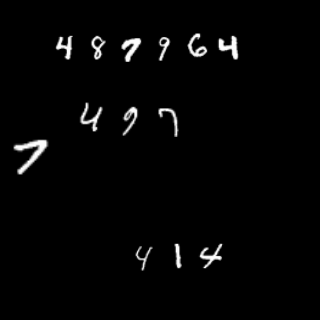 487964
497
7
414